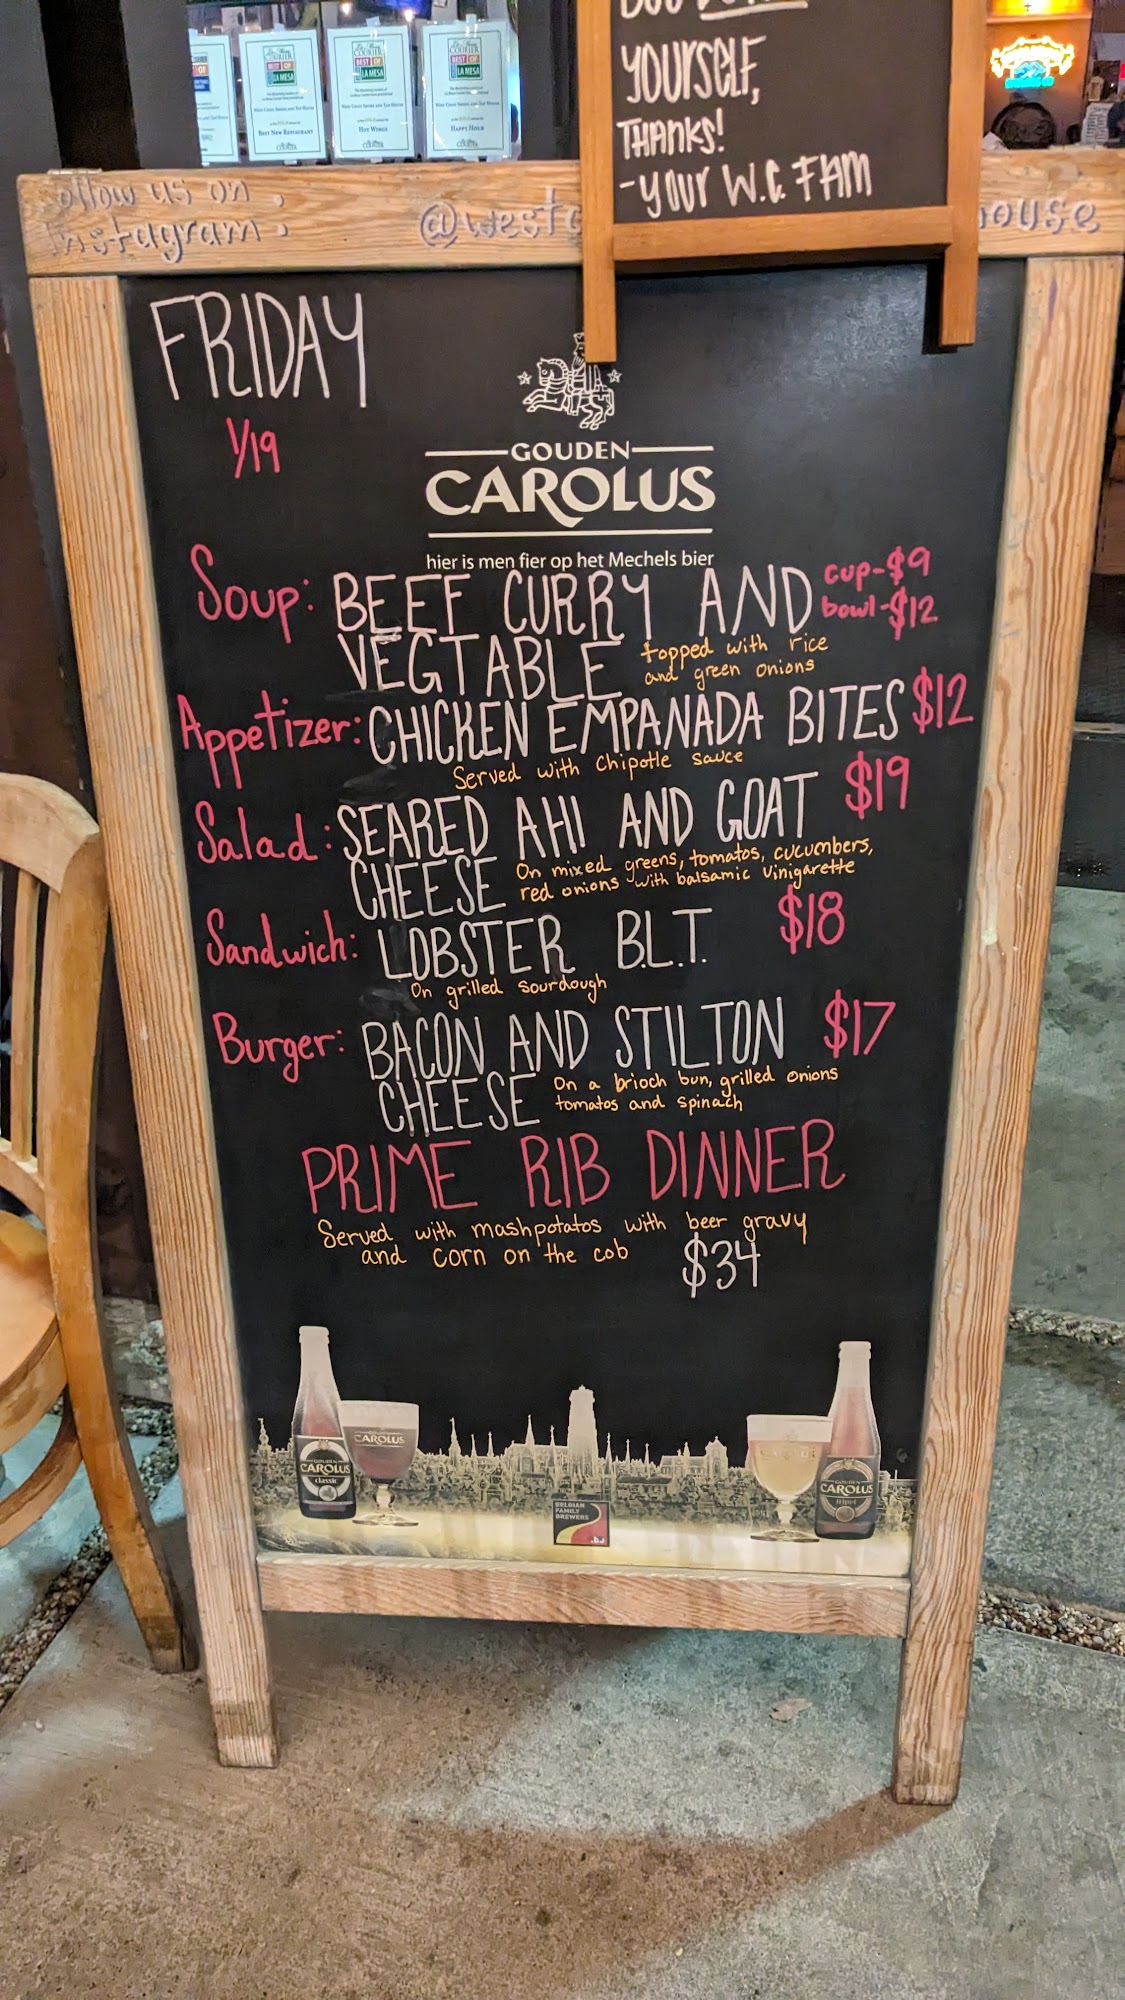 BEST OF
LA MESA
BEST NEW RESTAURANT
COURIER
BEST OF
LA MESA
HOT WINGS
COURIER
BEST OF
LA MESA
HAPPY HOUR
YOURSELF,
THANKS!
-YOUR W.C. FAM
ollow us on
Instagram:
@westc
ouse
FRIDAY
1/19
GOUDEN
CAROLUS
hier is men fier op het Mechels bier
Soup: BEEF CURRY AND cup-$9
bowl-$12
VEGTABLE topped with rice
and green onions
Appetizer: CHICKEN EMPANADA BITES $12
Served with Chipotle sauce
Salad: SEARED AHI AND GOAT $19
CHEESE On mixed greens, tomatos, cucumbers,
red onions with balsamic vinigarette
Sandwich: LOBSTER B.L.T. $18
On grilled sourdough
Burger: BACON AND STILTON $17
CHEESE On a brioch bun, grilled onions
tomatos and spinach
PRIME RIB DINNER
Served with mashpotatos with beer gravy
and corn on the cob $34
CAROLUS
GOUDEN
CAROLUS
classic
BELGIAN
FAMILY
BREWERS
GOUDEN
CAROLUS
tripel